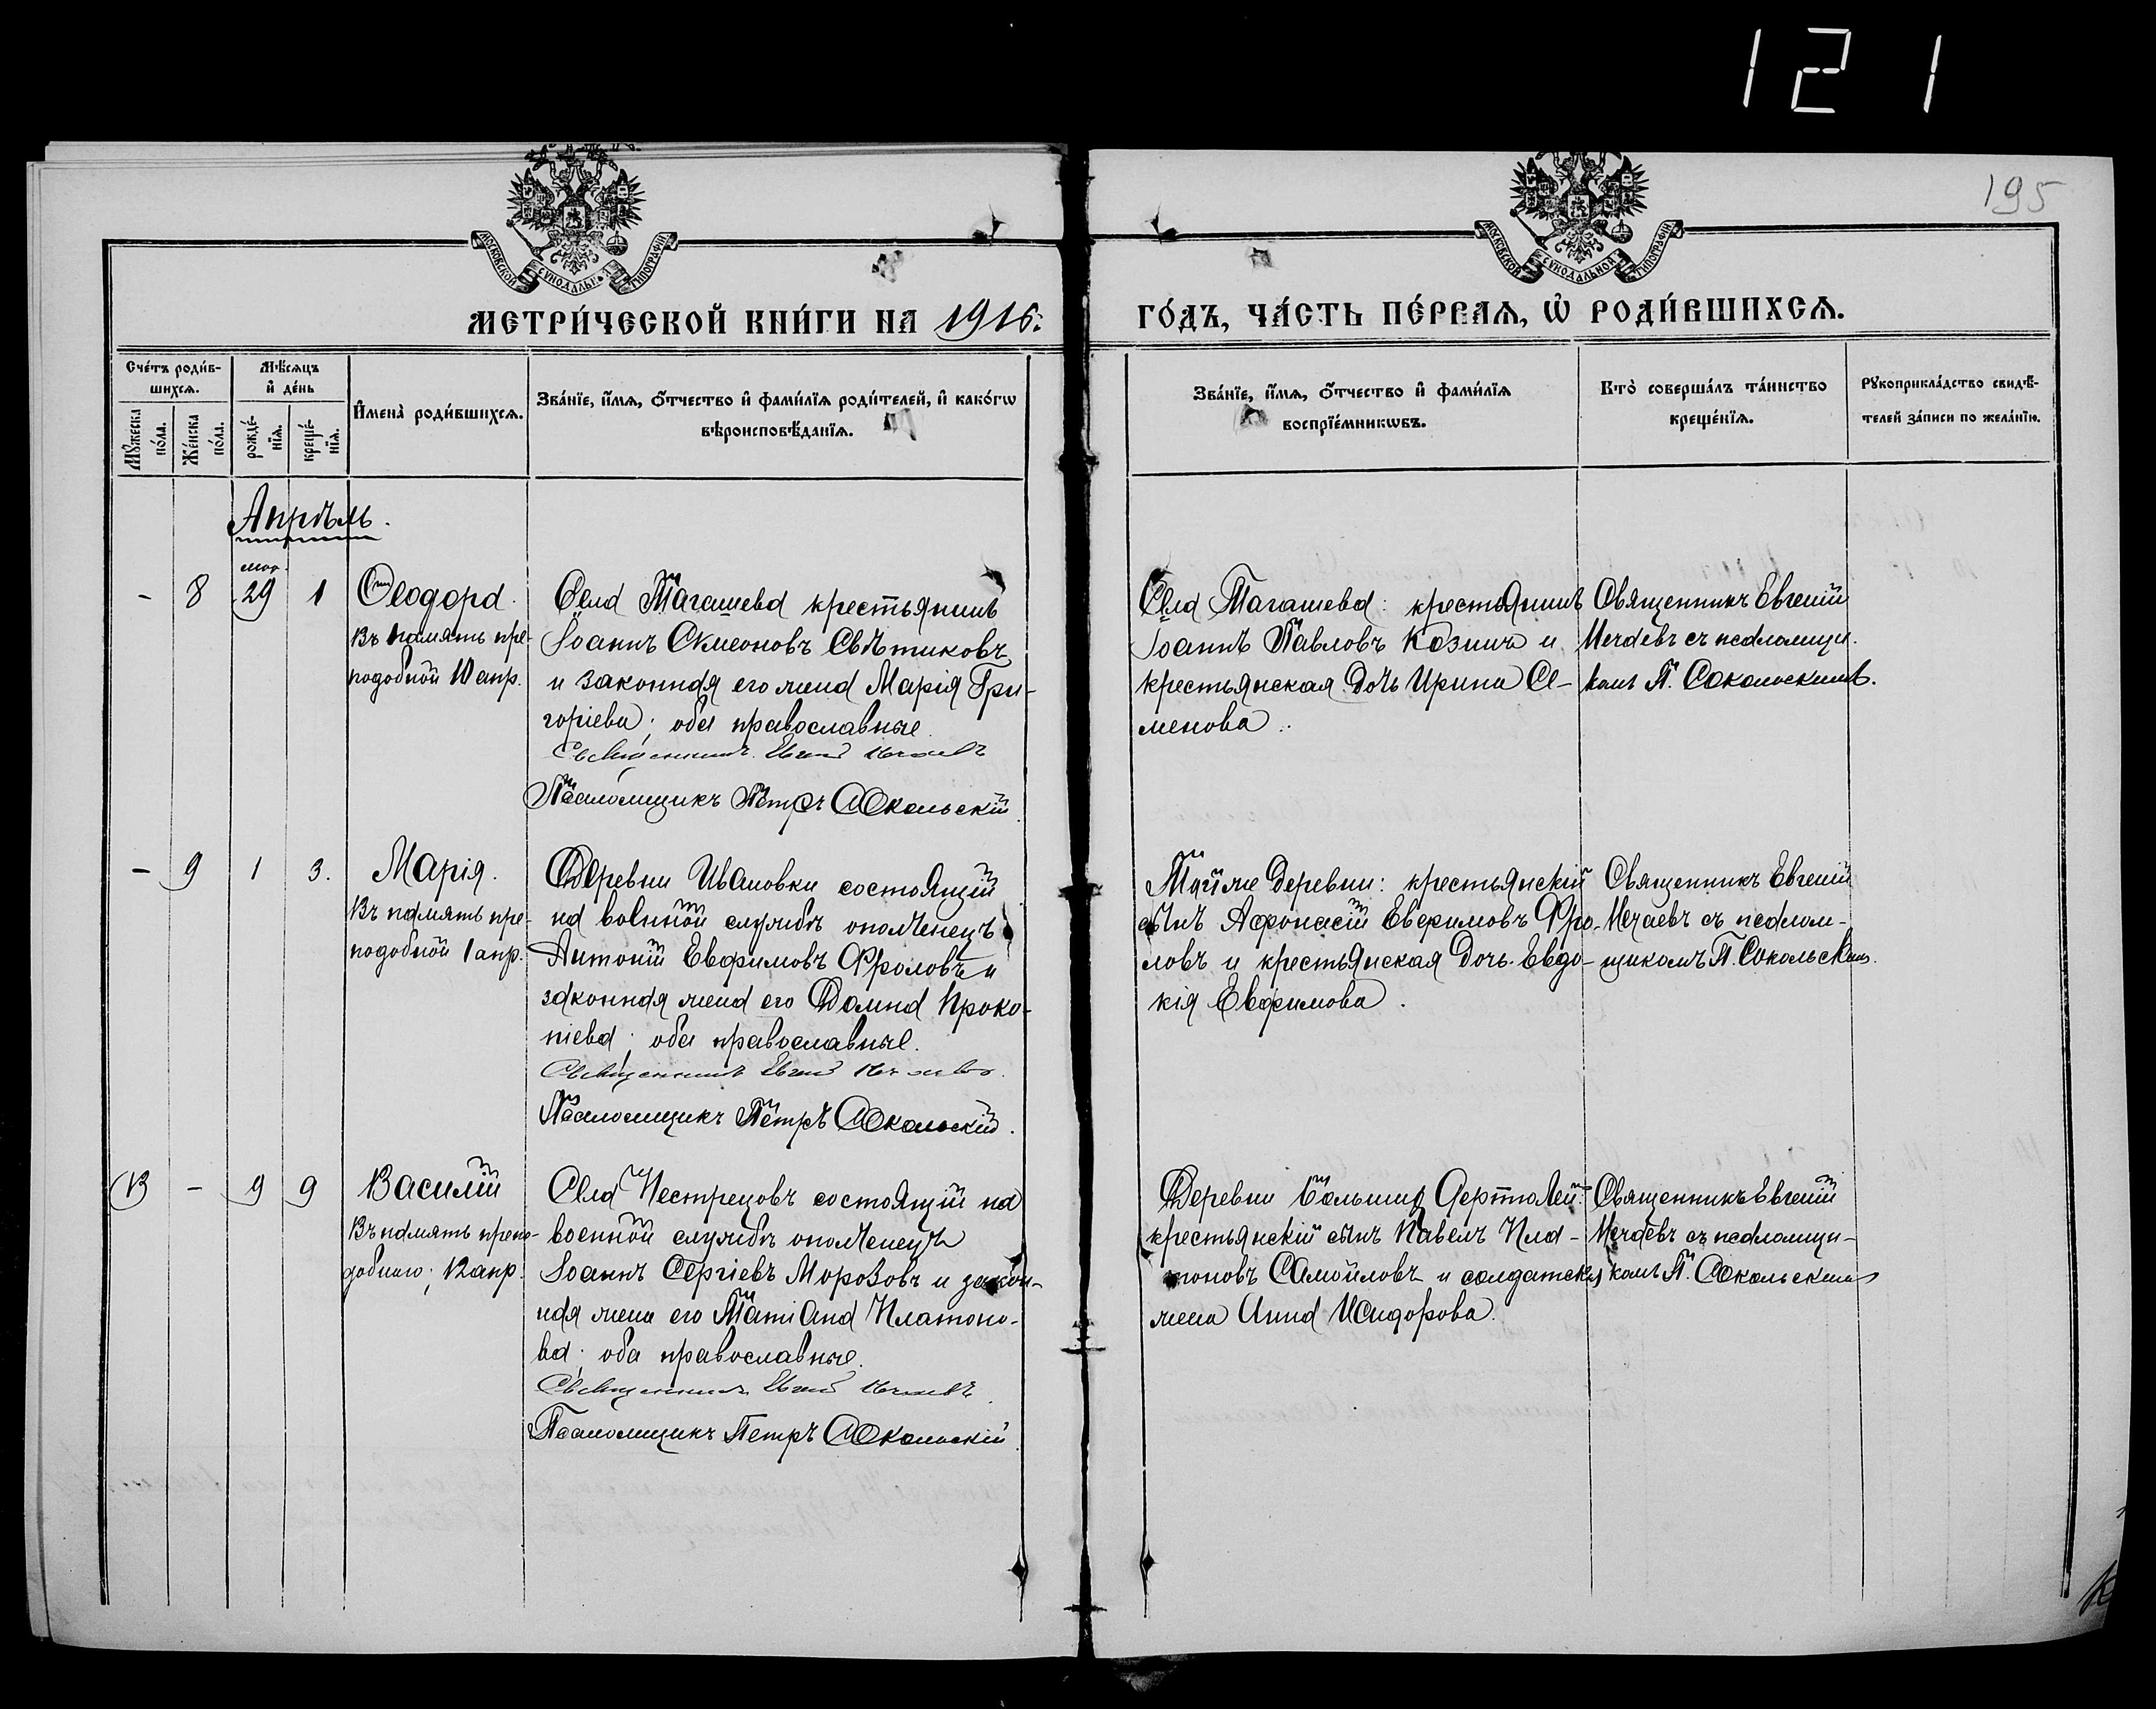 121
195
МОСКОВСКОЙ СѴНОДАЛЬН. ТИПОГРАФІИ
МОСКОВСКОЙ СѴНОДАЛЬНОЙ ТИПОГРАФІИ
МЕТРИ́ЧЕСКОЙ КНИ́ГИ НА 1916:
ГО́ДЪ, ЧА́СТЬ ПЕ́РВАЯ, Ѡ РОДИ́ВШИХСЯ.
Сче́тъ роди́в-
шихся.
Мꙋ́жеска по́ла.
Же́нска по́ла.
Мѣ́сяцъ
и҆ де́нь
рожде́-
нїя.
креще́-
нїя.
И҆мена̀ роди́вшихся.
Зва́нїе, и҆́мя, о҆́тчество и҆ фами́лїя роди́телей, и҆ како́гѡ
вѣроисповѣ́данїя.
Зва́нїе, и҆́мя, о҆́тчество и҆ фами́лїя
воспрїе́мникѡвъ.
Кто̀ соверша́лъ та́инство
креще́нїя.
Рꙋкоприкла́дство свидѣ́-
телей за́писи по жела́нїю.
Апрѣль.
мар.
- 8 29 1
Ѳеодора.
Въ память пре-
подобной 10 апр.
Села Тагашева крестьянинъ
Іоаннъ Симеоновъ Свѣтиковъ
и законная его жена Марія Гри-
горіева; оба православные.
Священникъ Евгеній Мечаевъ
Псаломщикъ Петръ Сокольскій
Села Тагашева: крестьянинъ
Іоаннъ Павловъ Козинъ и
крестьянская дочь Ирина Се-
менова.
Священникъ Евгеній
Мечаевъ съ псаломщи-
комъ П. Сокольскимъ.
- 9 1 3.
Марія.
Въ память пре-
подобной 1 апр.
Деревни Ивановки состоящій
на военной службѣ ополченецъ
Антоній Евфимовъ Фроловъ и
законная жена его Домна Проко-
піева; оба православные.
Священникъ Евгеній Мечаевъ
Псаломщикъ Петръ Сокольскій.
Той же деревни: крестьянскій
сынъ Афонасій Евфимовъ Фро-
ловъ и крестьянская дочь Евдо-
кія Евфимова.
Священникъ Евгеній
Мечаевъ съ псалом-
щикомъ П. Сокольским.
13 - 9 9
Василій
Въ память препо-
добнаго; 12 апр.
Села Нестрецовъ состоящій на
военной службѣ ополченецъ
Іоаннъ Сергіевъ Морозовъ и закон-
ная жена его Татіана Платоно-
ва; оба православные.
Священникъ Евгеній Мечаевъ
Псаломщикъ Петръ Сокольскій
Деревни
крестьянскій сынъ Павелъ Пла-
тоновъ Самойловъ и солдатская
жена Анна Исидорова.
Священникъ Евгеній
Мечаевъ съ псаломщи-
комъ П. Сокольскимъ